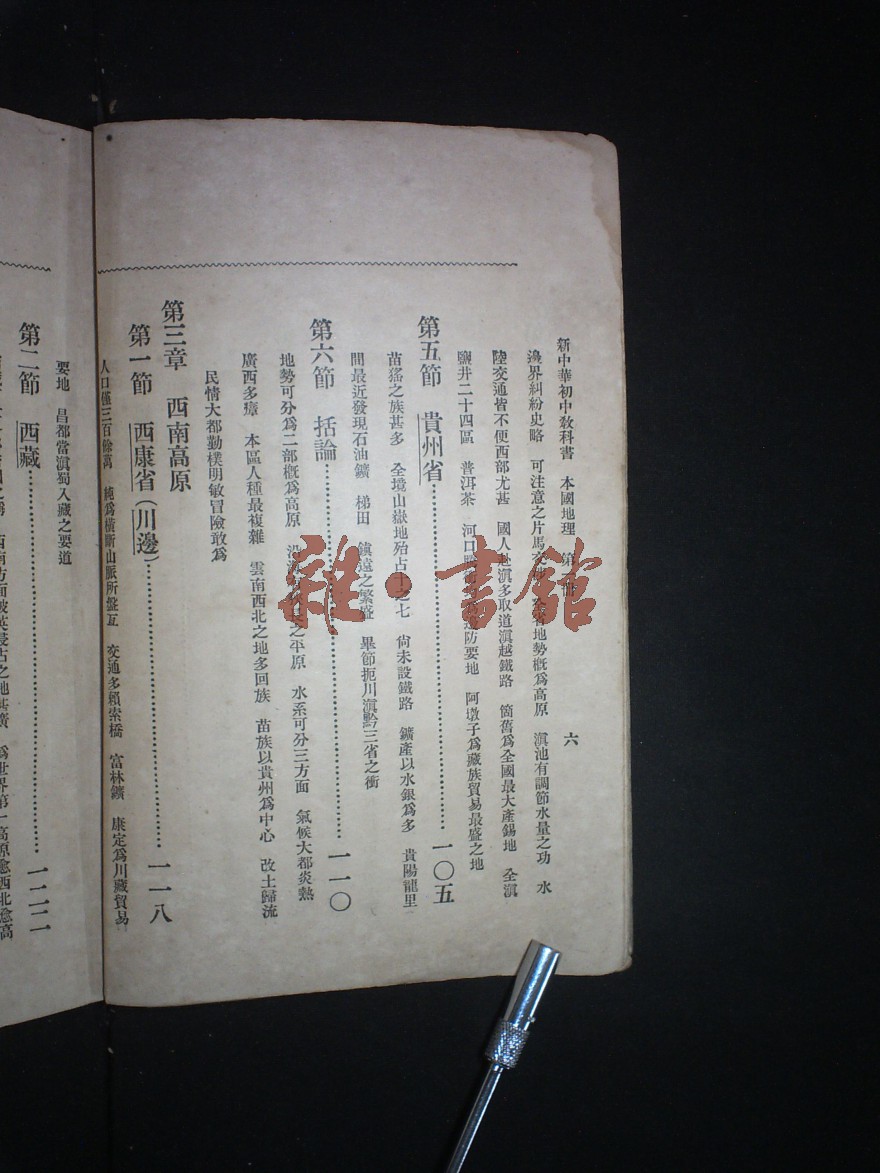 新中華初中教科書 本國地理 第 冊 六
邊界糾紛史略 可注意之片馬交 省地勢概爲高原 滇池有調節水量之功 水
陸交通皆不便西部尤甚 國人赴滇多取道滇越鐵路 箇舊爲全國最大產錫地 全滇
鹽井二十四區 普洱茶 河口 防要地 阿墩子爲藏族貿易最盛之地
第五節 貴州省 一〇五
苗猺之族甚多 全境山嶽地殆占十之七 尙未設鐵路 鑛產以水銀爲多 貴陽龍里
間最近發現石油鑛 梯田 鎮遠之繁盛 畢節扼川滇黔三省之衝
第六節 括論 一一〇
地勢可分爲二部概爲高原 沿 之平原 水系可分三方面 氣候大都炎熱
廣西多瘴 本區人種最複雜 雲南西北之地多回族 苗族以貴州爲中心 改土歸流
民情大都勤樸明敏冒險敢爲
第三章 西南高原
第一節 西康省(川邊) 一一八
人口僅三百餘萬 純爲橫斷山脈所盤亙 交通多賴索橋 富林鑛 康定爲川藏貿易
要地 昌都當滇蜀入藏之要道
第二節 西藏 一二二
西南方面被英侵占之地甚廣 爲世界第一高原愈西北愈高
雜·書館